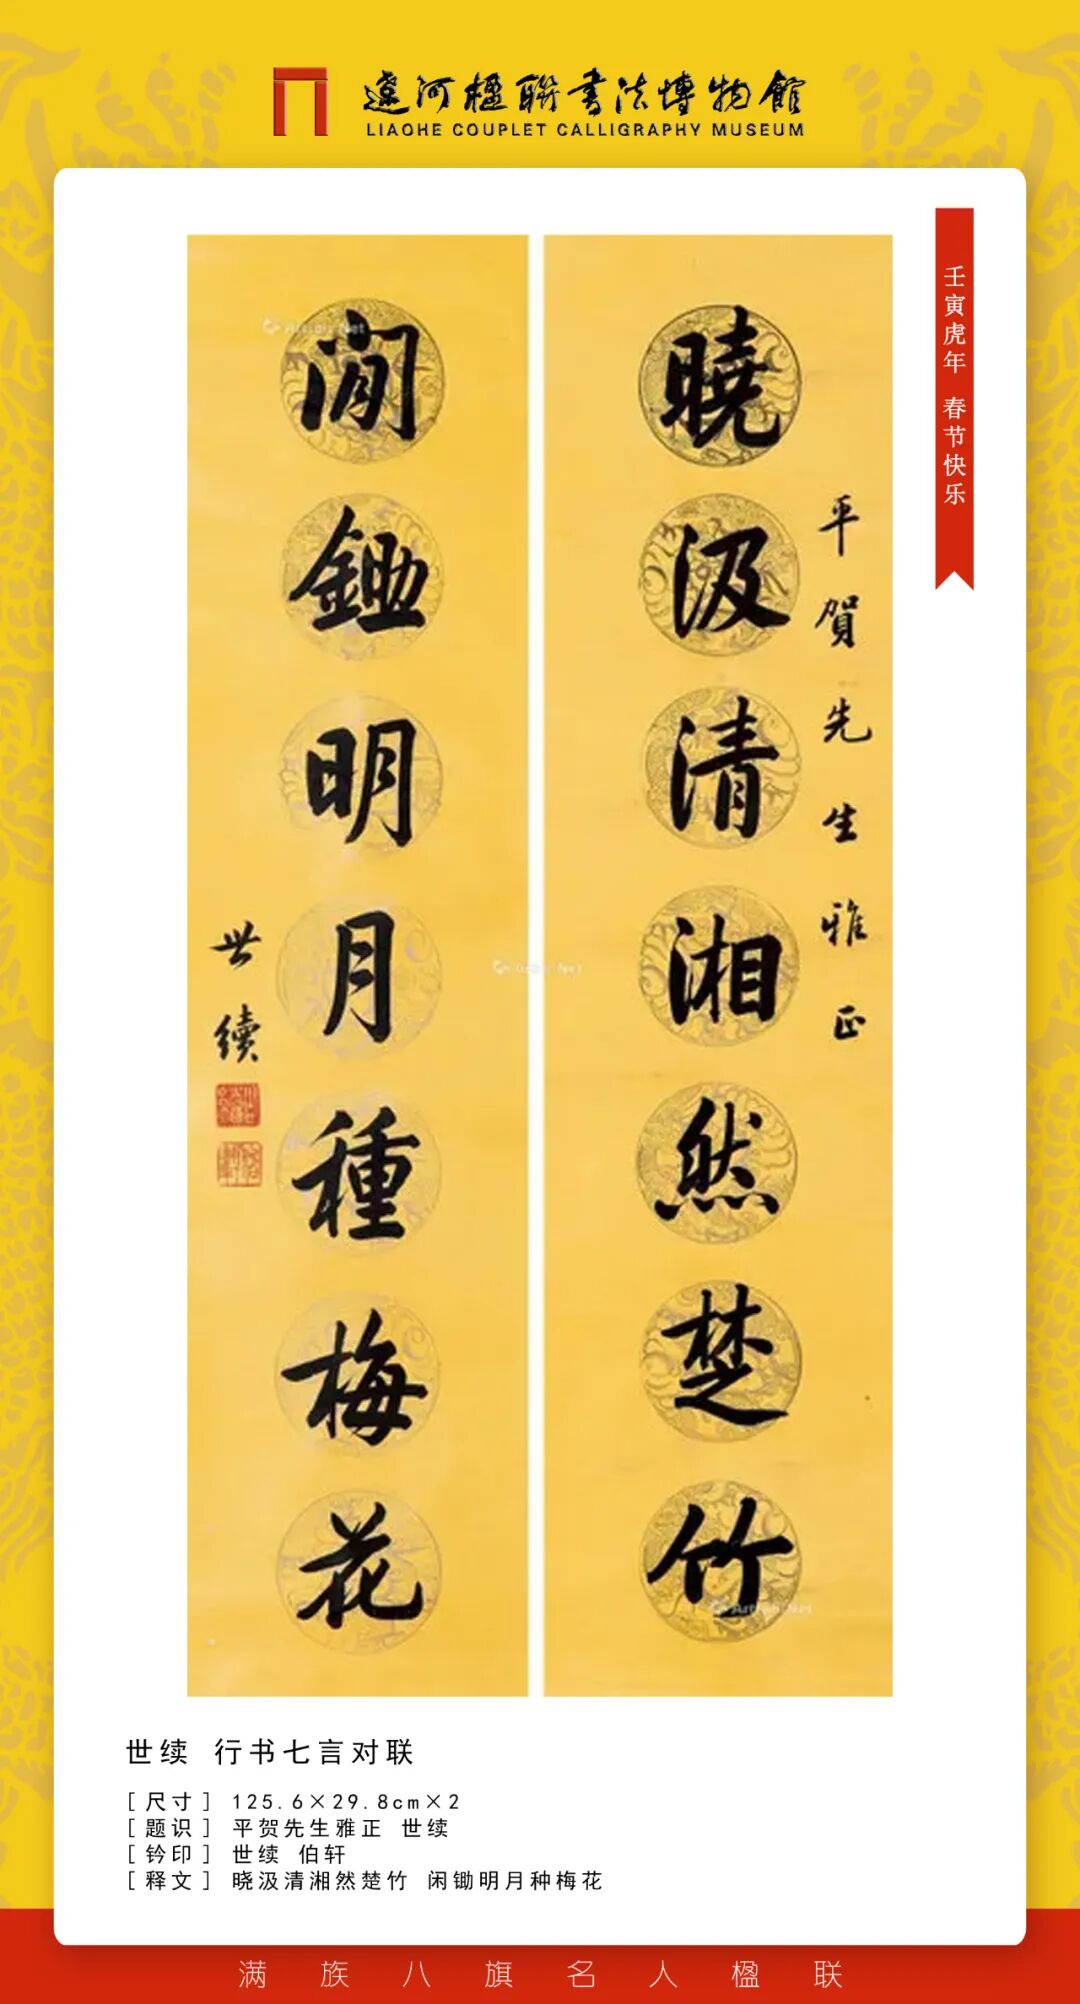 遼河楹聯書法博物館
LIAOHE COUPLET CALLIGRAPHY MUSEUM
壬寅虎年 春节快乐
平賀先生雅正
曉汲清湘然楚竹
閒鋤明月種梅花
世續
世续 行书七言对联
[尺寸] 125.6×29.8cm×2
[题识] 平贺先生雅正 世续
[钤印] 世续 伯轩
[释文] 晓汲清湘然楚竹 闲锄明月种梅花
满族八旗名人楹联